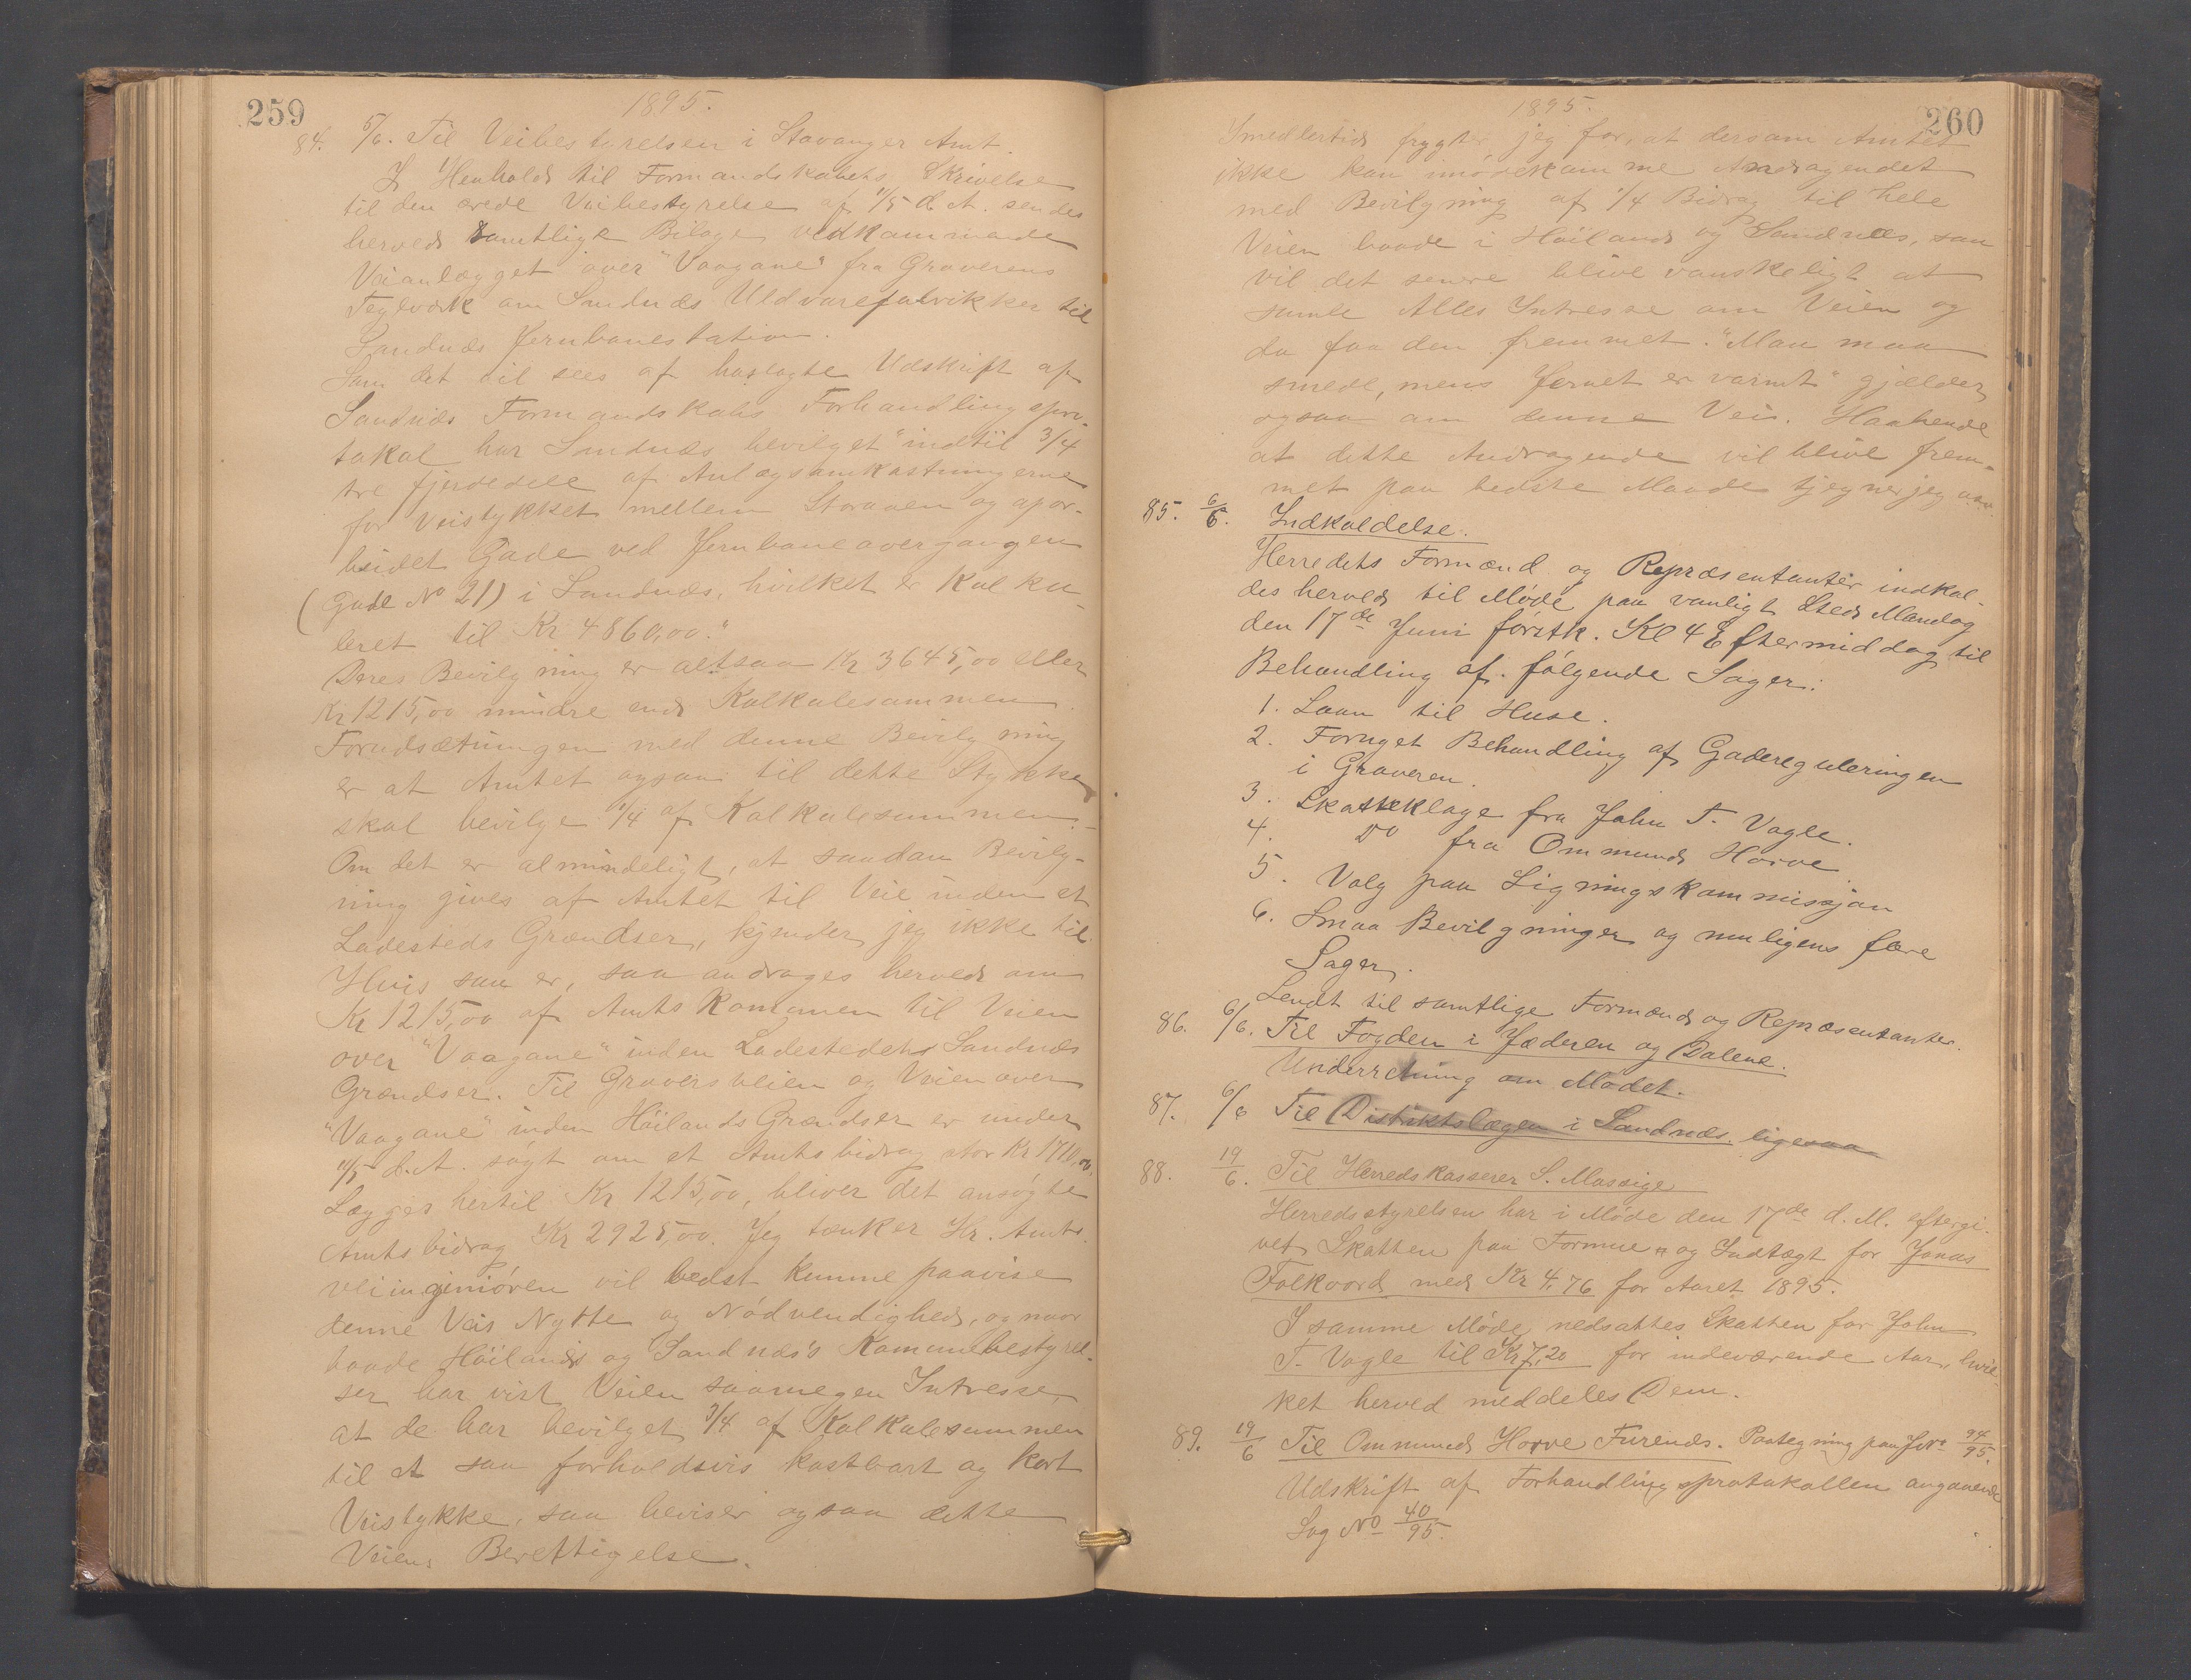 259
1895.
84. 5/6. Til Veibestyrelsen i Stavanger Amt.
I Henhold til Formandskabets Skrivelse
til den ærede Veibestyrelse af 11/5 d. A. sendes
herved samtlige Bilage vedkommende
Veianlægget over "Vaagane" fra Graverens
Teglværk om Sandnæs Uldvarefabrikker til
Sandnæs Jernbanestation.
Som det vil sees af hoslagte Udskrift af
Sandnæs Formandskabs Forhandlingspro-
tokol har Sandnæs bevilget "indtil 3/4
tre fjerdedele af Anlægsomkostningerne
for Veistykket mellem Storaaen og opar-
beidet Gade ved Jernbaneovergangen
(Gade No 21) i Sandnæs, hvilket er kalku-
leret til Kr 4860,00."
Deres Bevilgning er altsaa Kr 3645,00 eller
Kr 1215,00 mindre end Kalkulesummen.
Forudsætningen med denne Bevilgning
er at Amtet ogsaa til dette Stykke
skal bevilge 1/4 af Kalkulesummen.-
Om det er almindeligt, at saadan Bevilg-
ning gives af Amtet til Veie inden et
Ladesteds Grændser, kjender jeg ikke til.
Hvis saa er, saa andrages herved om
Kr 1215,00 af Amtskommunen til Veien
over "Vaagane" inden Ladestedets Sandnæs
Grændser. Til Graversveien og Veien over
"Vaagane" inden Høilands Grændser er under
11/5 d. A. søgt om et Amtsbidrag stor Kr 1710,00.
Lægges hertil Kr 1215,00, bliver det ansøgte
Amtsbidrag Kr 2925,00. Jeg tænker Hr. Amts-
veiingeniøren vil bedst kunne paavise
denne Veis Nytte og Nødvendighed, og naar
baade Høilands og Sandnæs's Kommunebestyrel-
ser har vist Veien saamegen Intresse,
at de har bevilget 3/4 af Kalkulesummen
til et saa forholdsvis kostbart og kort
Veistykke, saa beviser ogsaa dette
Veiens Berettigelse.
260
1895.
Imedlertid frygter jeg for, at dersom Amtet
ikke kan imødekomme Andragendet
med Bevilgning af 1/4 Bidrag til hele
Veien baade i Høiland og Sandnæs, saa
vil det senere blive vanskeligt at
samle Alles Intresse om Veien og
da faa den fremmet. "Man maa
smede, mens Jernet er varmt" gjælder
ogsaa om denne Vei. Haabende
at dette Andragende vil blive frem-
met paa bedste Maade tegner jeg
85. 6/6. Indkaldelse.
Herredets Formænd og Repræsentanter indkal-
des herved til Møde paa vanligt Sted Mandag
den 17de Juni førstk. Kl 4 Eftermiddag til
Behandling af følgende Sager:
1. Laan til Huse.
2. Fornyet Behandling af Gadereguleringen
i Graveren.
3. Skatteklage fra John T. Vagle.
4. Do fra Ommund Horve.
5. Valg paa Ligningskommissjon
6. Smaa Bevilgninger og muligens flere
Sager.
Sendt til samtlige Formænd og Repræsentanter.
86. 6/6. Til Fogden i Jæderen og Dalene.
Underretning om Mødet.
87. 6/6 Til Distriktslægen i Sandnæs. ligesaa
88. 19/6. Til Herredskasserer S. Maseige
Herredsstyrelsen har i Møde den 17de d. M. eftergi-
vet Skatten paa Formue og Indtægt for Jonas
Folkvord med Kr 4,76 for Aaret 1895.
I samme Møde nedsattes Skatten for John
T. Vagle til Kr 7,20 for indeværende Aar, hvil-
ket herved meddeles Dem.
89. 19/6 Til Ommund Horve Furends. Paategning paa JNo 94/95.
Udskrift af Forhandlingsprotokollen angaaende
Sag No 40/95.